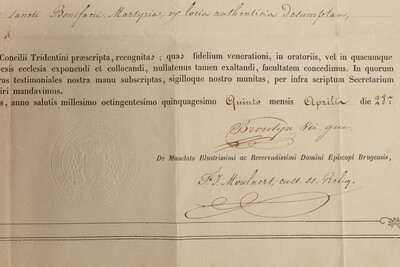 sancti Bonifacii, Martyris, ex locis authenticis desumptas,
Concilii Tridentini præscripta, recognitas; quas fidelium venerationi, in oratoriis, vel in quacumque
esis ecclesia exponendi et collocandi, nullatenus tamen exaltandi, facultatem concedimus. In quorum
ras testimoniales nostra manu subscriptas, sigilloque nostro munitas, per infra scriptum Secretarium
iri mandavimus.
s, anno salutis millesimo octingentesimo quinquagesimo Quinto mensis Aprilis die 28ª
Vic. gen.
De Mandato Illustrissimi ac Reverendissimi Domini Episcopi Brugensis,
F. J. Moulaert, cust. ss. Reliq.